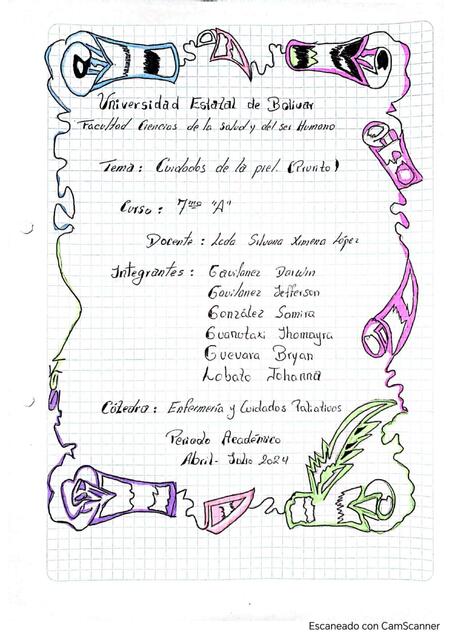 Universidad Estatal de Bolívar
Facultad Ciencias de la Salud y del ser Humano
Tema: Cuidados de la piel (Prurito)
Curso: 7mo "A"
Docente: Lcda Silvana Ximena López
Integrantes: Gavilanez Darwin
Gavilanez Jefferson
González Somira
Guanotaxi Jhomayra
Guevara Bryan
Lobato Johanna
Cátedra: Enfermería y Cuidados Paliativos
Periodo Académico
Abril-Julio 2024
Escaneado con CamScanner